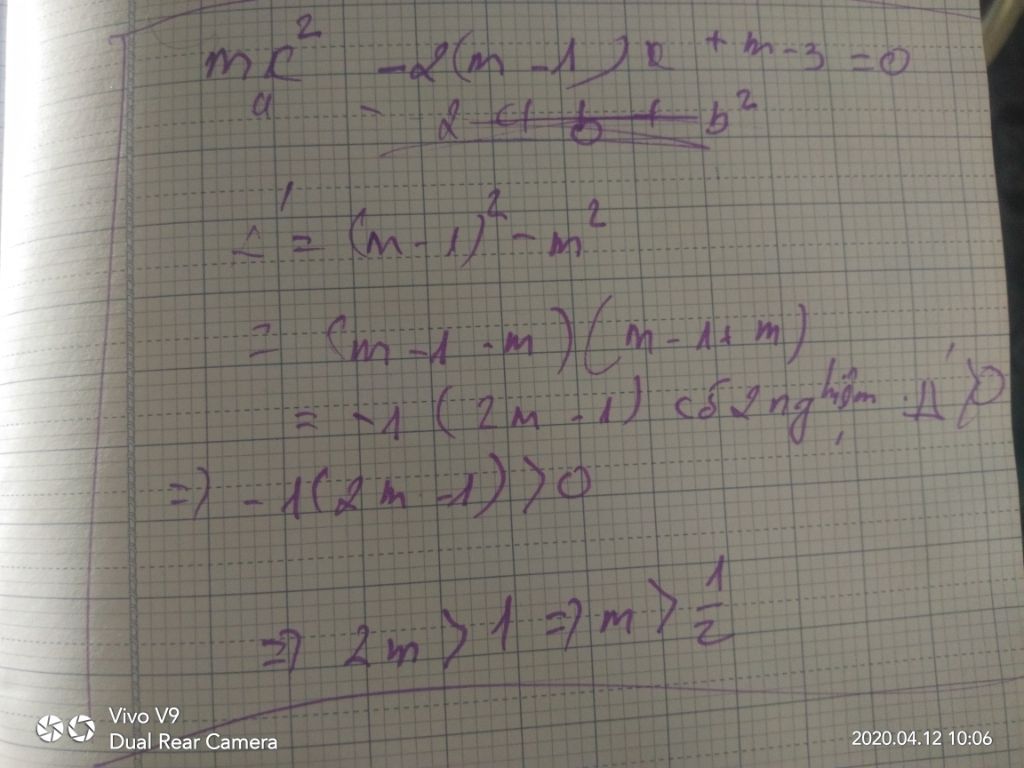 mx² - 2(m - 1)x + m - 3 = 0
a - 2 b²
Δ' = (m - 1)² - m²
= (m - 1 - m)(m - 1 + m)
= -1(2m - 1) có 2 nghiệm Δ' > 0
=> -1(2m - 1) > 0
=> 2m > 1 => m > 1/2
Vivo V9
Dual Rear Camera
2020.04.12 10:06